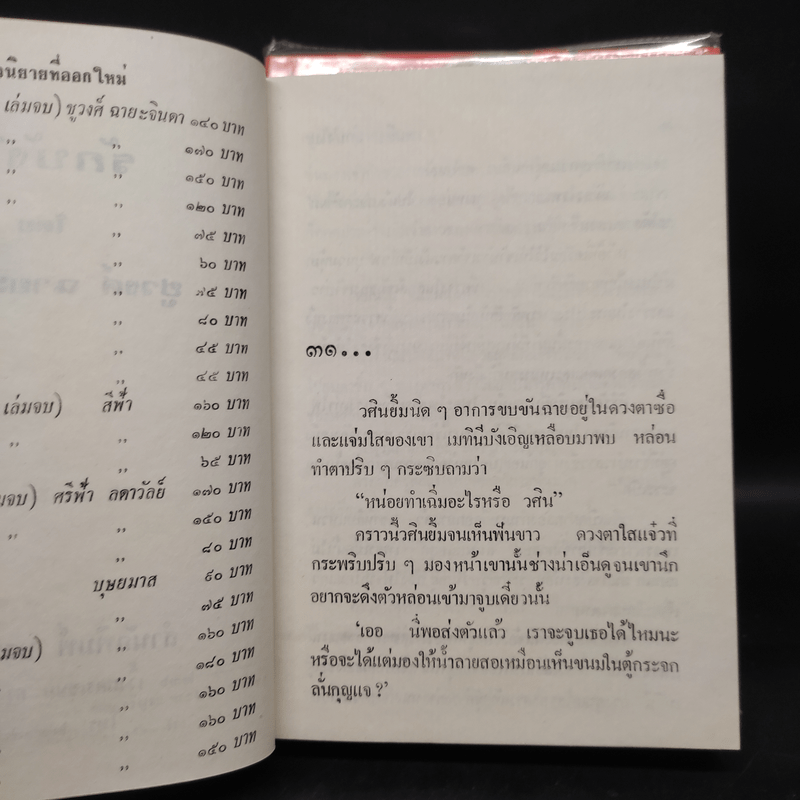 นิยายที่ออกใหม่
เล่มจบ) ชูวงศ์ ฉายะจินดา ๑๔๐ บาท
,, ,, ๑๗๐ บาท
,, ,, ๑๕๐ บาท
,, ,, ๑๒๐ บาท
,, ๗๕ บาท
,, ๖๐ บาท
,, ๗๕ บาท
,, ๘๐ บาท
,, ๔๕ บาท
,, ๔๕ บาท
เล่มจบ) สีฟ้า ๑๖๐ บาท
,, ,, ๑๒๐ บาท
,, ๖๕ บาท
มจบ) ศรีฟ้า ลดาวัลย์ ๑๗๐ บาท
,, ,, ๑๕๐ บาท
,, ๘๐ บาท
บุษยมาส ๙๐ บาท
,, ๗๕ บาท
มจบ) ,, ๑๖๐ บาท
,, ๑๘๐ บาท
,, ๑๖๐ บาท
,, ๑๖๐ บาท
,, ๑๕๐ บาท
๓๑...
วศินยิ้มนิด ๆ อาการขบขันฉายอยู่ในดวงตาซื่อ
และแจ่มใสของเขา เมทินีบังเอิญเหลือบมาพบ หล่อน
ทำตาปริบ ๆ กระซิบถามว่า
“หน่อยทำเฉิ่มอะไรหรือ วศิน”
คราวนี้วศินยิ้มจนเห็นฟันขาว ดวงตาใสแจ๋วที่
กระพริบปริบ ๆ มองหน้าเขานั้นช่างน่าเอ็นดูจนเขานึก
อยากจะดึงตัวหล่อนเข้ามาจูบเดี๋ยวนั้น
‘เออ นี่พอส่งตัวแล้ว เราจะจูบเธอได้ไหมนะ
หรือจะได้แต่มองให้น้ำลายสอเหมือนเห็นขนมในตู้กระจก
ลั่นกุญแจ ?’